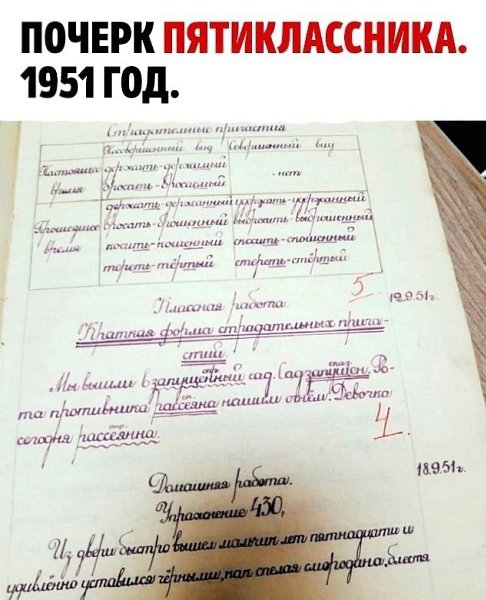 ПОЧЕРК ПЯТИКЛАССНИКА.
1951 ГОД.
Страдательные причастия
Несовершенный вид Совершенный вид
Настоящее время
держать - держимый
бросать - бросаемый
- нет
Прошедшее время
держать - держанный удержать - удержанный
бросать - брошенный выбросить - выброшенный
носить - ношенный сносить - сношенный
тереть - тёртый стереть - стёртый
5
Классная работа. 12.9.51г.
Краткая форма страдательных прича-
стий.
опр. сказ.
Мы вышли в запущенный сад. Сад запущен. Ро-
ск.
та противника рассеяна нашим огнём. Девочка
опр.
сегодня рассеянна.
4
Домашняя работа. 18.9.51г.
Упражнение 430,
Из двери быстро вышел мальчик лет пятнадцати и
удивлённо уставился чёрными, как спелая смородина, блестя